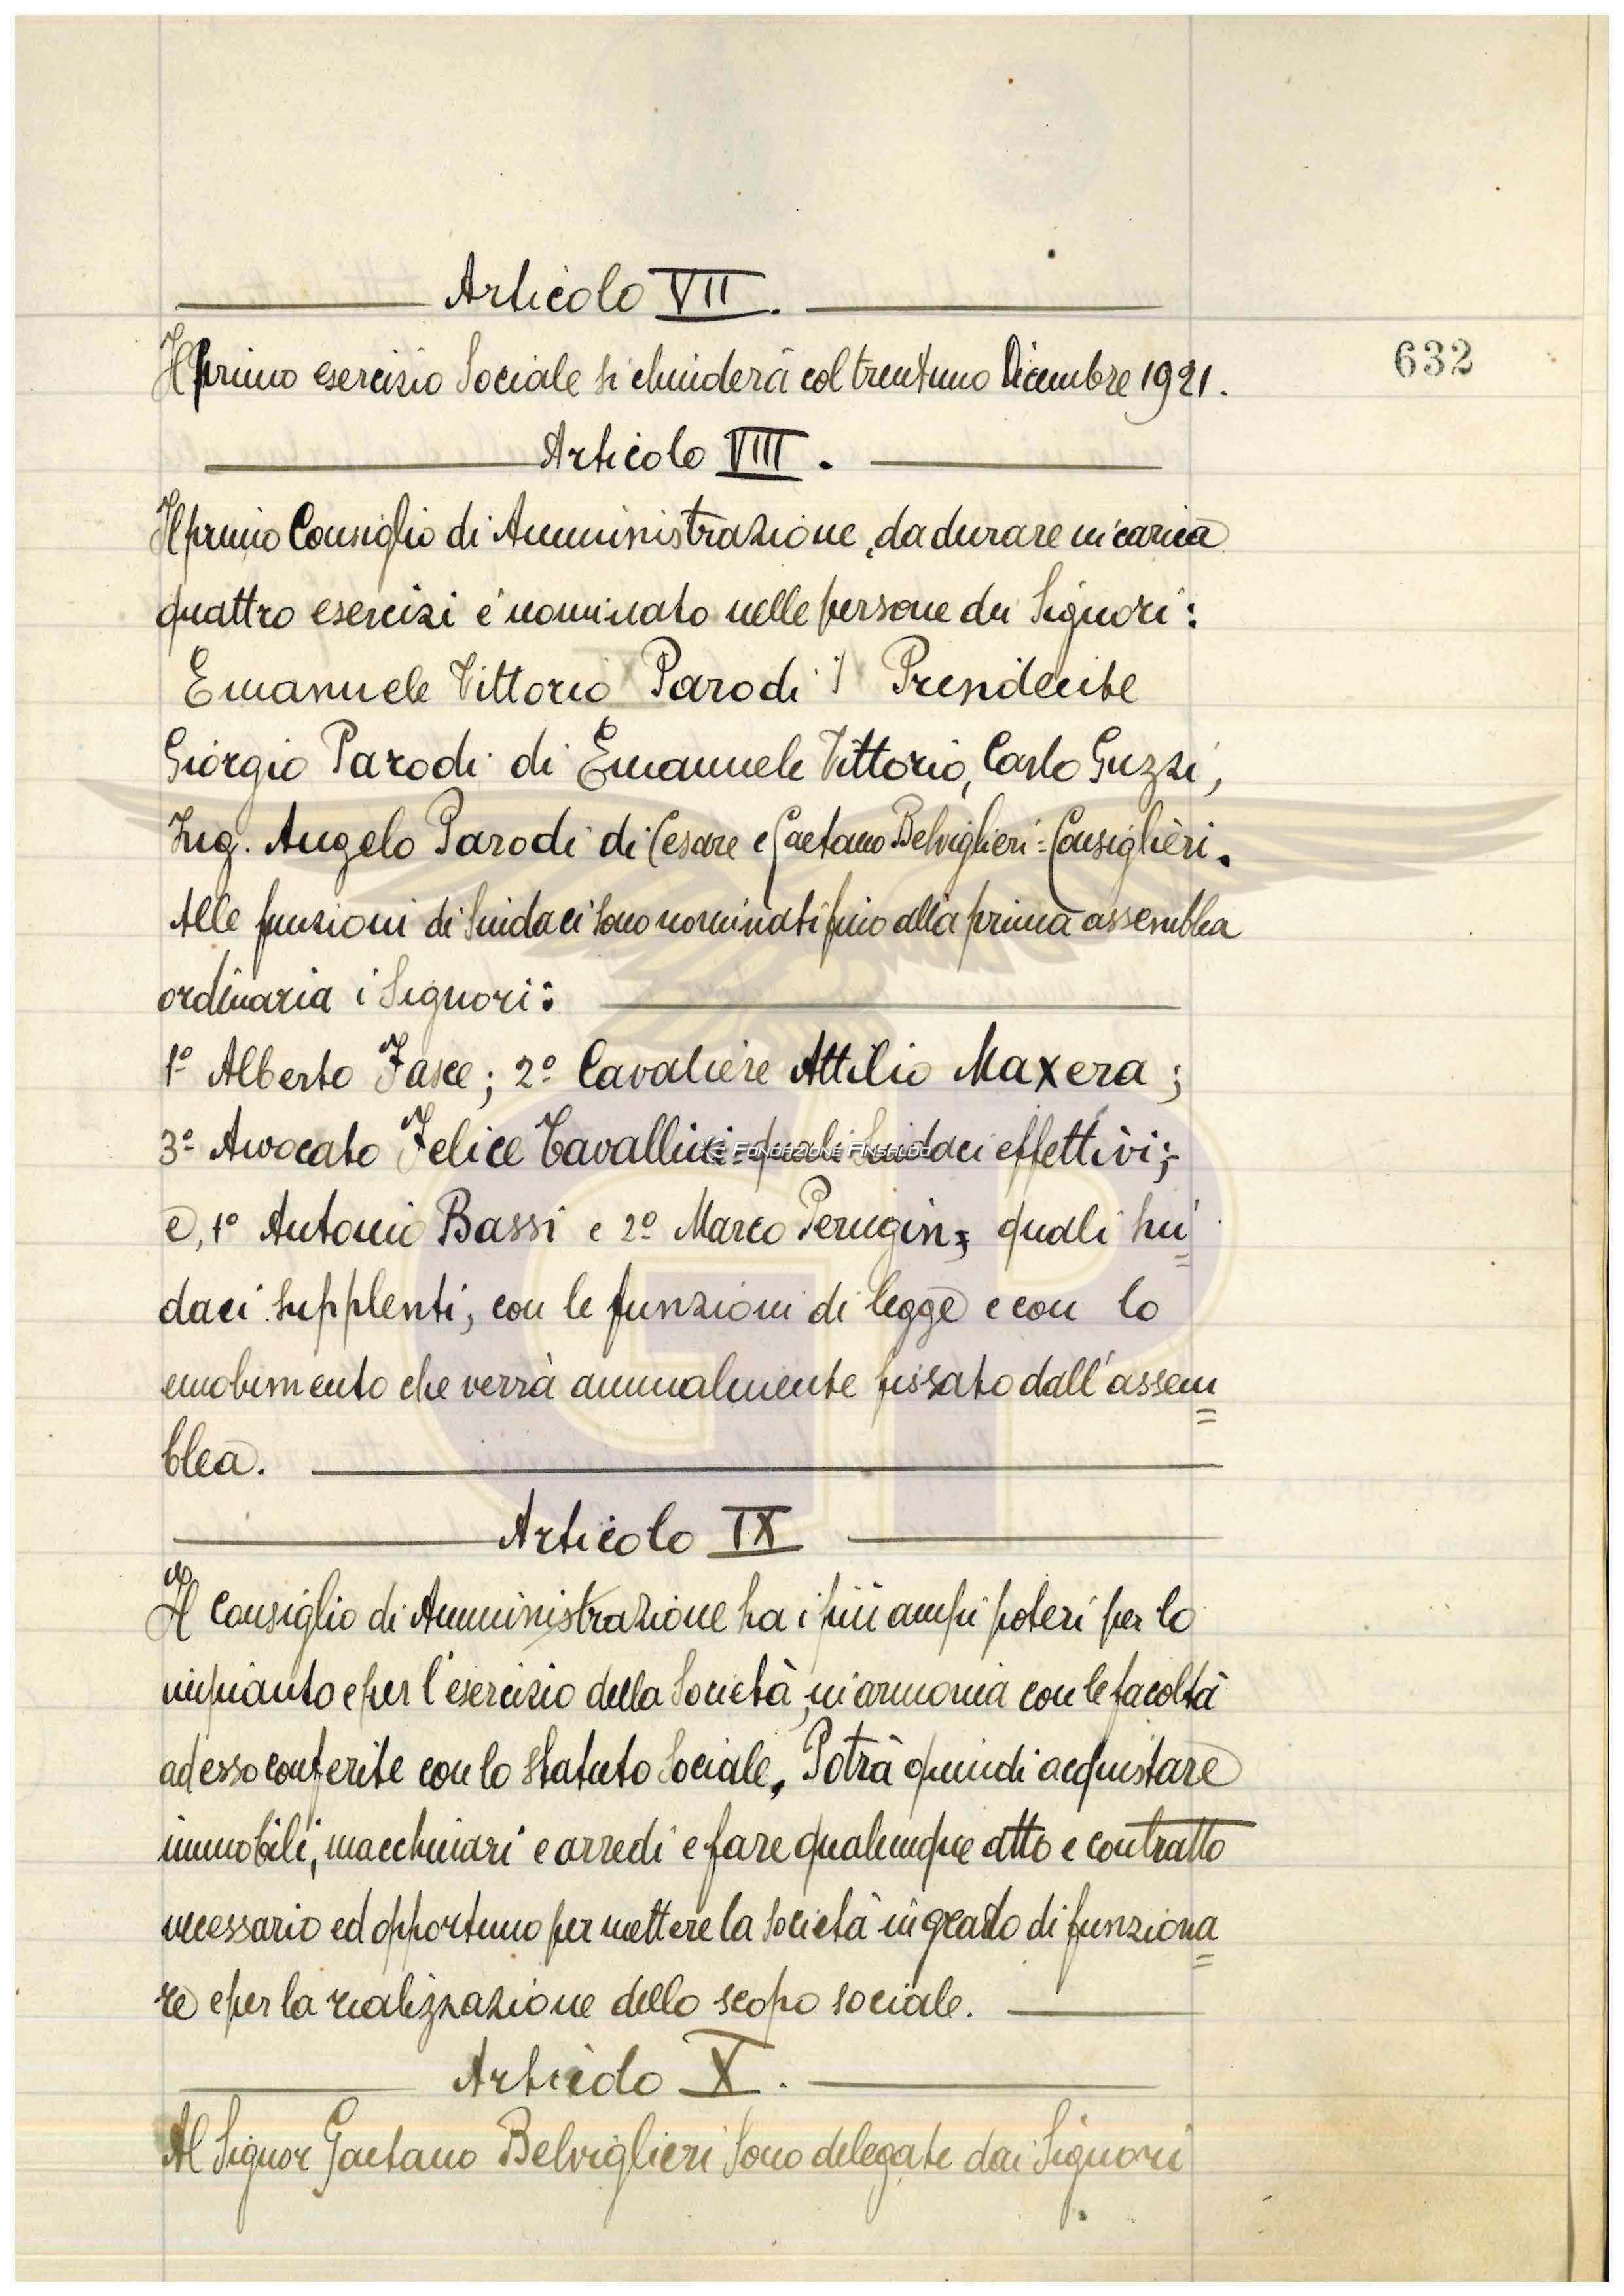 Articolo VII.
Il primo esercizio Sociale si chiuderà col trentuno Dicembre 1921.
632
Articolo VIII.
Il primo Consiglio di Amministrazione, da durare in carica
quattro esercizi è nominato nelle persone dei Signori:
Emanuele Vittorio Parodi Presidente
Giorgio Parodi di Emanuele Vittorio, Carlo Guzzi,
Ing. Angelo Parodi di Cesare e Gaetano Belviglieri = Consiglieri.
Alle funzioni di Sindaci sono nominati fino alla prima assemblea
ordinaria i Signori:
1º Alberto Fasce; 2º Cavaliere Attilio Maxera;
3º Avvocato Felice Cavallini = quali Sindaci effettivi;
FONDAZIONE ANSALDO
e, 1º Antonio Bassi e 2º Marco Perugin, quali Sin
daci supplenti, con le funzioni di legge e con lo
emolumento che verrà annualmente fissato dall'assem
blea.
Articolo IX
Il Consiglio di Amministrazione ha i più ampi poteri per lo
impianto e per l'esercizio della Società, in armonia con le facoltà
ad esso conferite con lo Statuto Sociale. Potrà quindi acquistare
immobili, macchinari e arredi e fare qualunque atto e contratto
necessario ed opportuno per mettere la Società in grado di funziona
re e per la realizzazione dello scopo sociale.
Articolo X.
Al Signor Gaetano Belviglieri sono delegate dai Signori